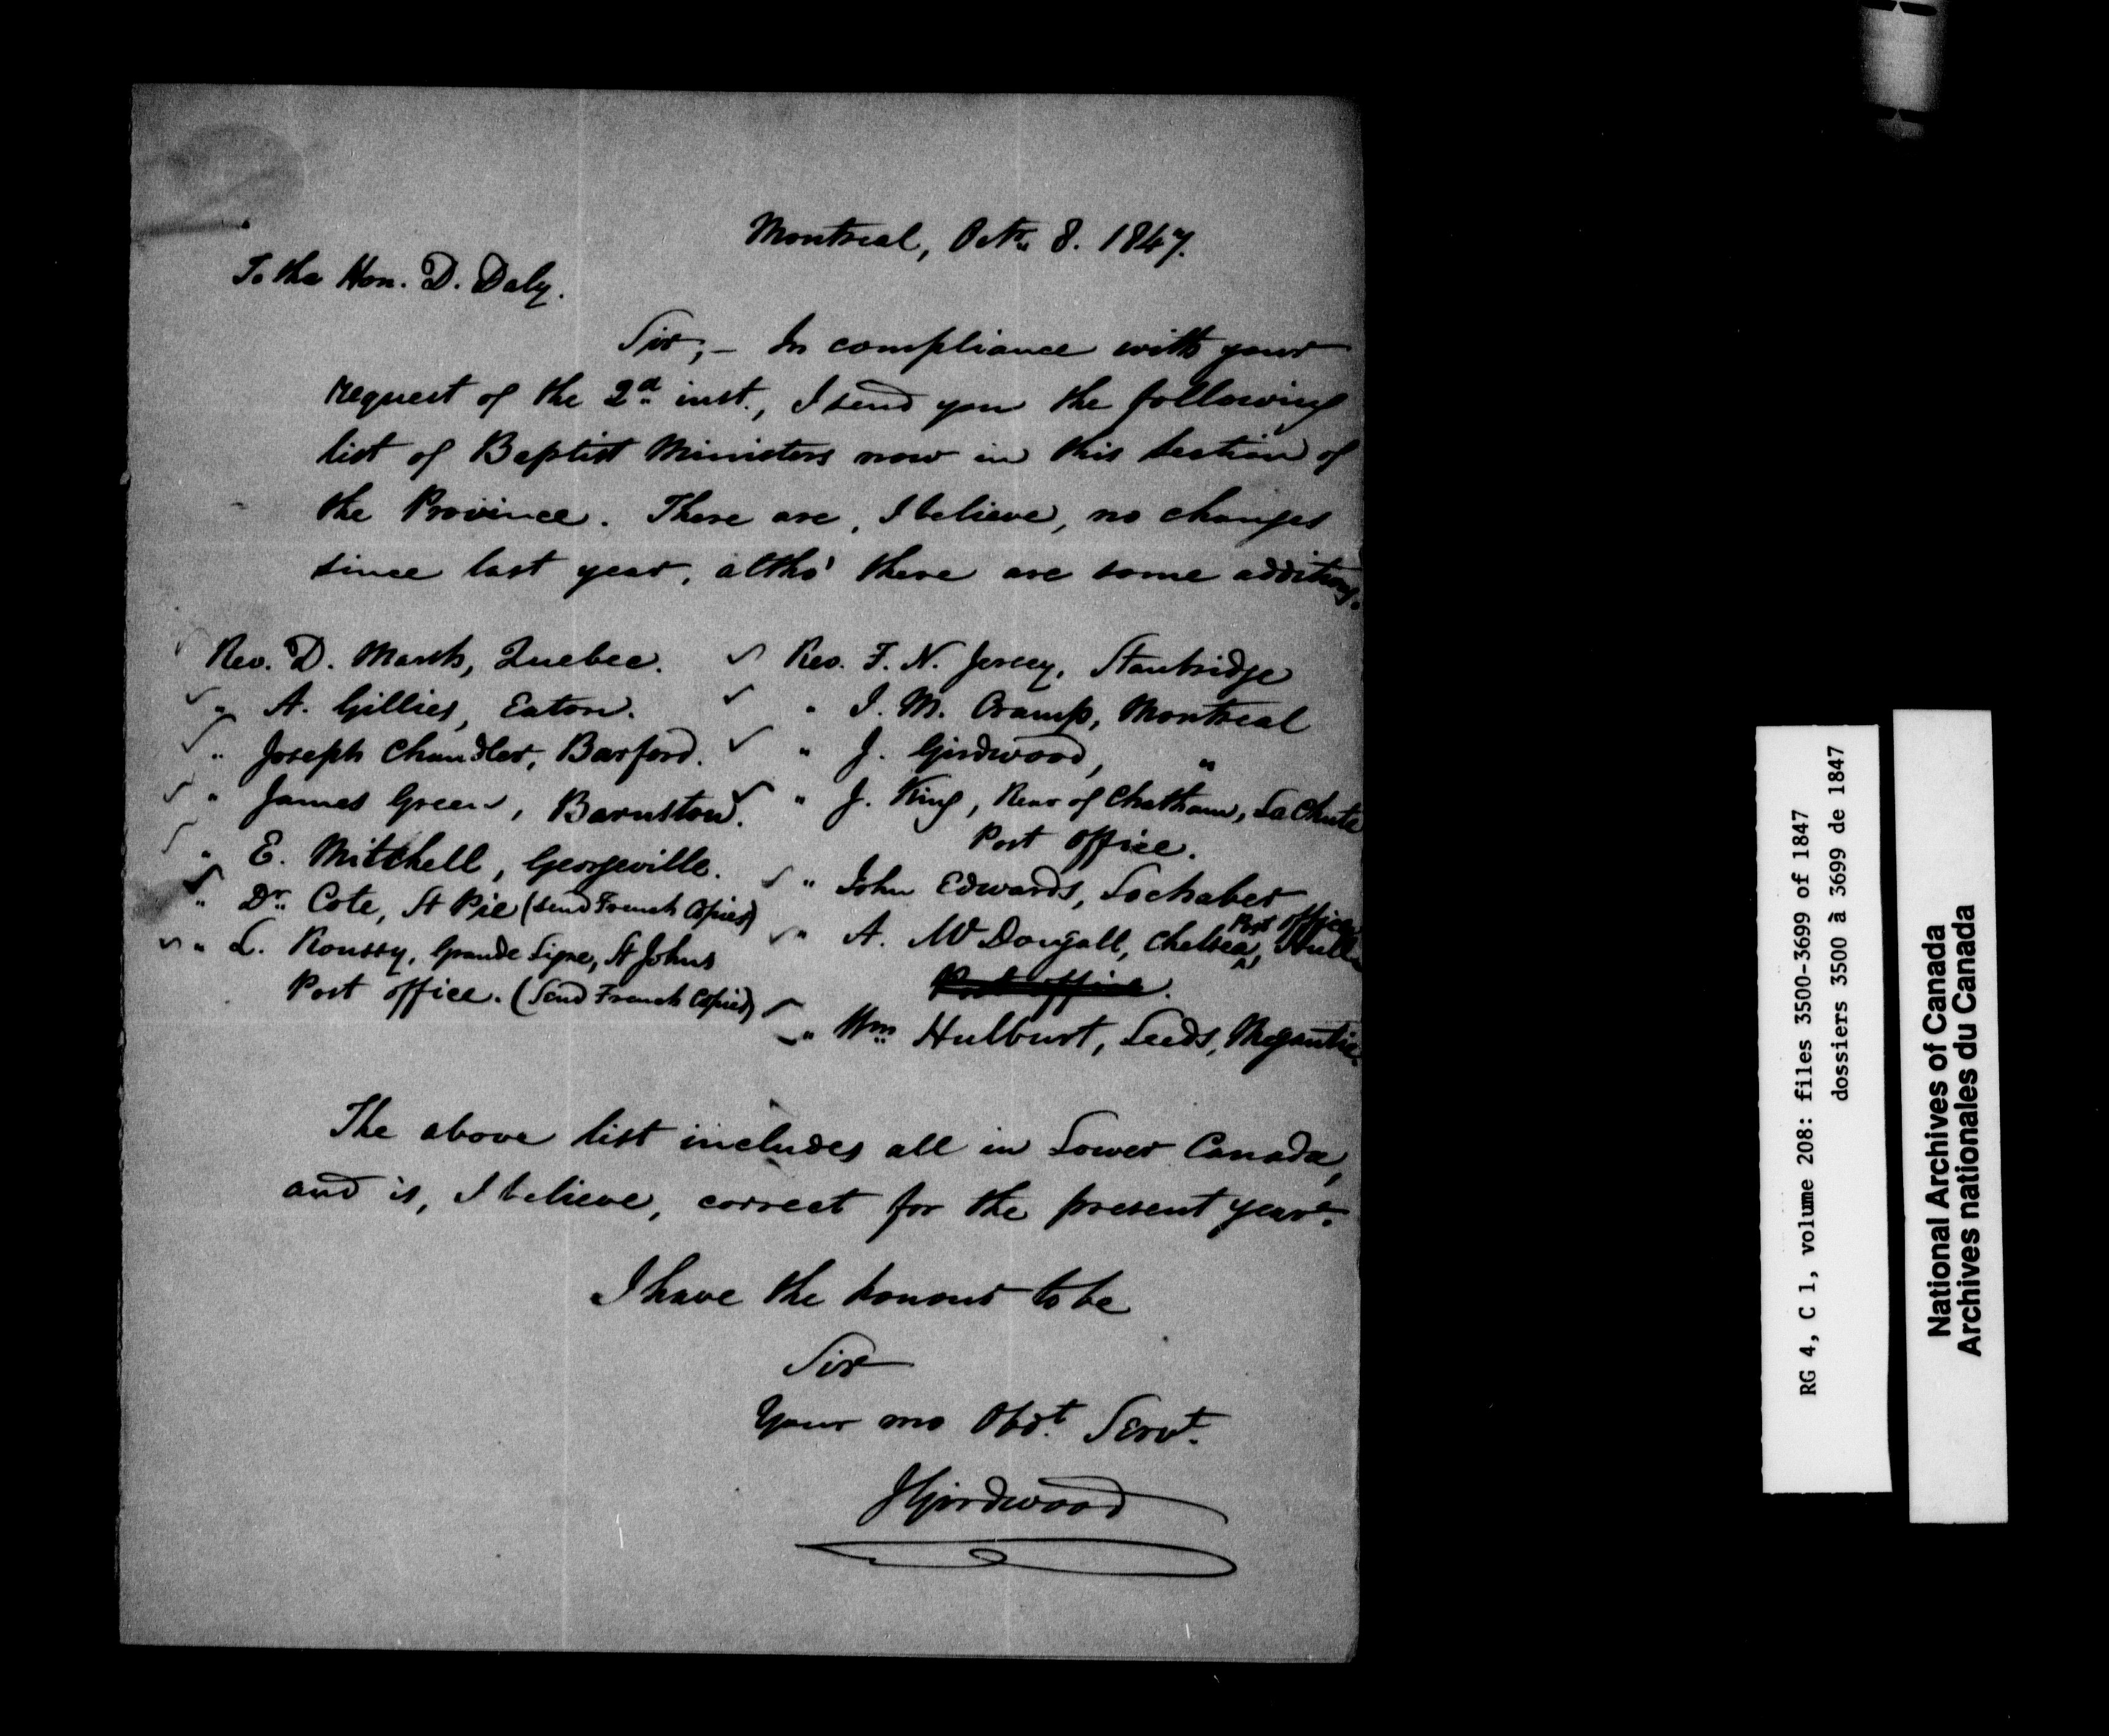 Montreal, Octr. 8. 1847.
To the Hon. D. Daly.
Sir; – In compliance with your
request of the 2d. inst., I send you the following
list of Baptist Ministers now in this section of
the Province. There are, I believe, no changes
since last year, altho' there are some additions.
Rev. D. Marsh, Quebec.
✓ " A. Gillies, Eaton.
✓ " Joseph Chandler, Barford.
✓ " James Green, Barnston.
✓ " E. Mitchell, Georgeville.
✓ " Dr. Cote, St Pie (send French Copies)
✓ " L. Roussy, Grande Ligne, St Johns
Post office. (Send French Copies)
✓ Rev. F. N. Jersey, Stanbridge
✓ " J. M. Cramp, Montreal
✓ " J. Girdwood, "
✓ " J. King, Rear of Chatham, La Chute
Post Office.
✓ " John Edwards, Lochaber
Post office
✓ " A. McDougall, Chelsea, Hull
Post office.
✓ " Wm. Hulburt, Leeds, Megantic.
The above list includes all in Lower Canada,
and is, I believe, correct for the present year.
I have the honour to be
Sir
Your mo Obdt. Servt.
JGirdwood
RG 4, C 1, volume 208: files 3500-3699 of 1847
dossiers 3500 à 3699 de 1847
National Archives of Canada
Archives nationales du Canada